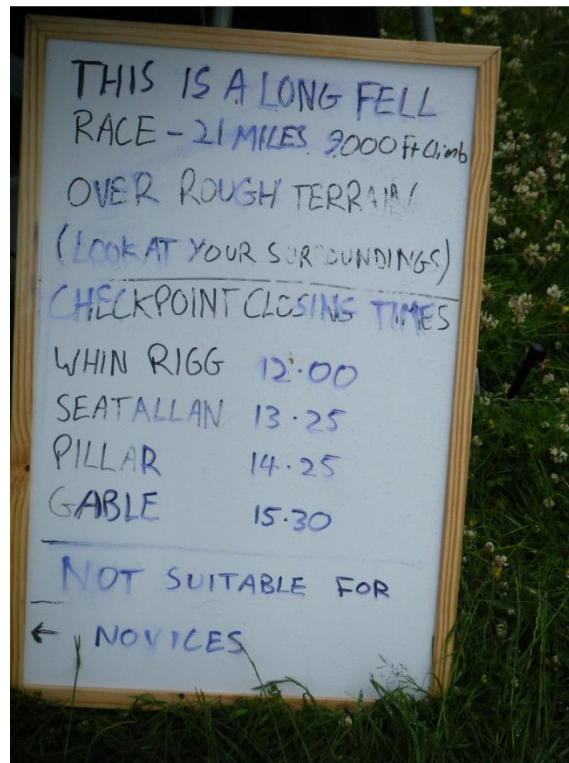 THIS IS A LONG FELL
RACE - 21 MILES 9000 Ft Climb
OVER ROUGH TERRAIN
(LOOK AT YOUR SURROUNDINGS)
CHECKPOINT CLOSING TIMES
WHIN RIGG 12.00
SEATALLAN 13.25
PILLAR 14.25
GABLE 15.30
NOT SUITABLE FOR
← NOVICES